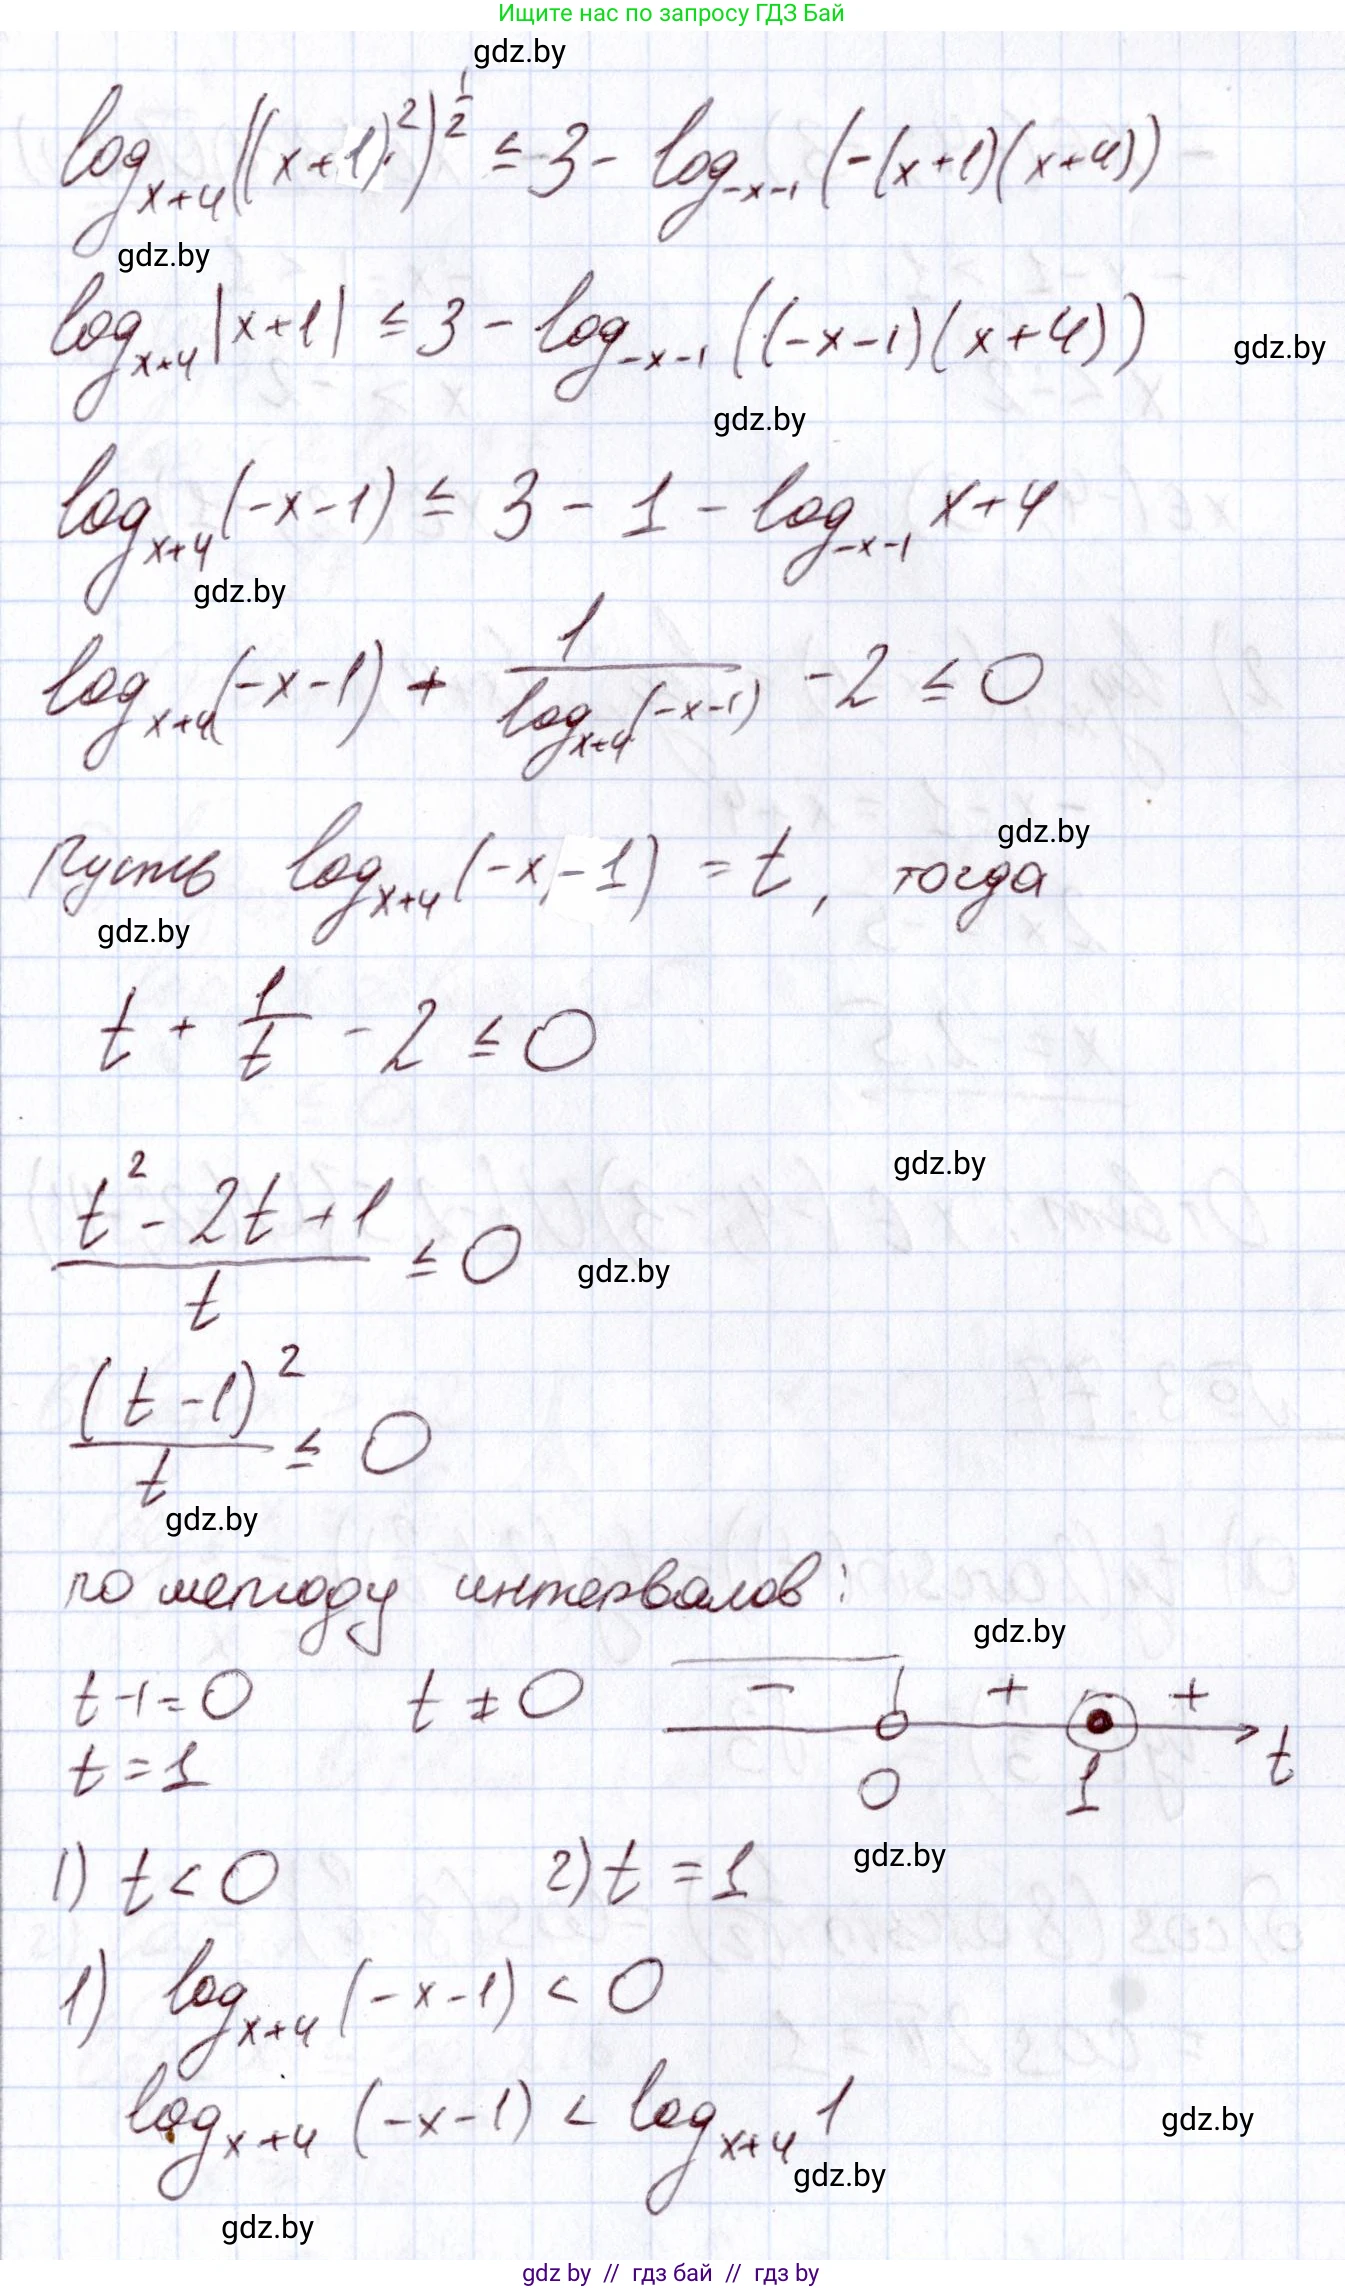 Ищите нас по запросу ГДЗ Бай
gdz.by
log_{x+4} ((x+1)^2)^{1/2} ≤ 3 - log_{-x-1} (-(x+1)(x+4))
gdz.by
log_{x+4} |x+1| ≤ 3 - log_{-x-1} ((-x-1)(x+4))
gdz.by
gdz.by
log_{x+4} (-x-1) ≤ 3 - 1 - log_{-x-1} x+4
gdz.by
log_{x+4} (-x-1) + 1/(log_{x+4} (-x-1)) - 2 ≤ 0
gdz.by
Пусть log_{x+4} (-x-1) = t, тогда
gdz.by
t + 1/t - 2 ≤ 0
gdz.by
(t^2 - 2t + 1)/t ≤ 0
gdz.by
(t-1)^2/t ≤ 0
gdz.by
по методу интервалов:
gdz.by
t-1=0 t ≠ 0 - + +
t=1 0 1 t
gdz.by
1) t < 0 2) t = 1
1) log_{x+4} (-x-1) < 0
log_{x+4} (-x-1) < log_{x+4} 1
gdz.by
gdz.by
gdz.by
gdz by // гдз бай // гдз by